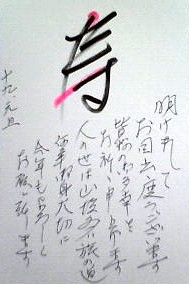 寿
明けまして
お目出度うございます
皆様のご多幸を
お祈り申し上げます
人の世は山坂多い旅の道
御身大切に
今年もよろしく
お願い致します
十九、元旦